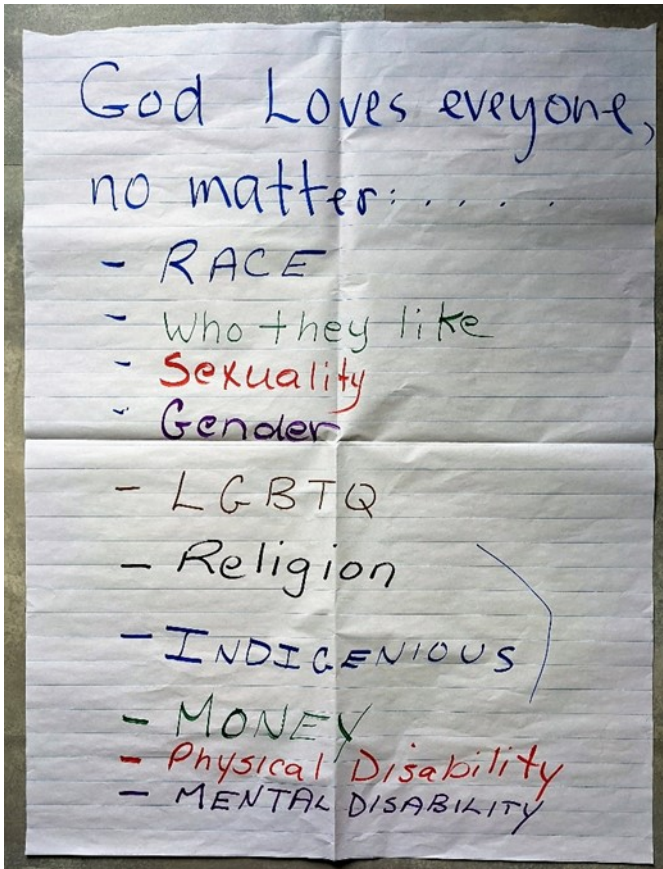 God Loves eveyone,
no matter: . . . . .
- RACE
- Who they like
- Sexuality
- Gender
- LGBTQ
- Religion
- INDIGENIOUS
- MONEY
- Physical Disability
- MENTAL DISABILITY